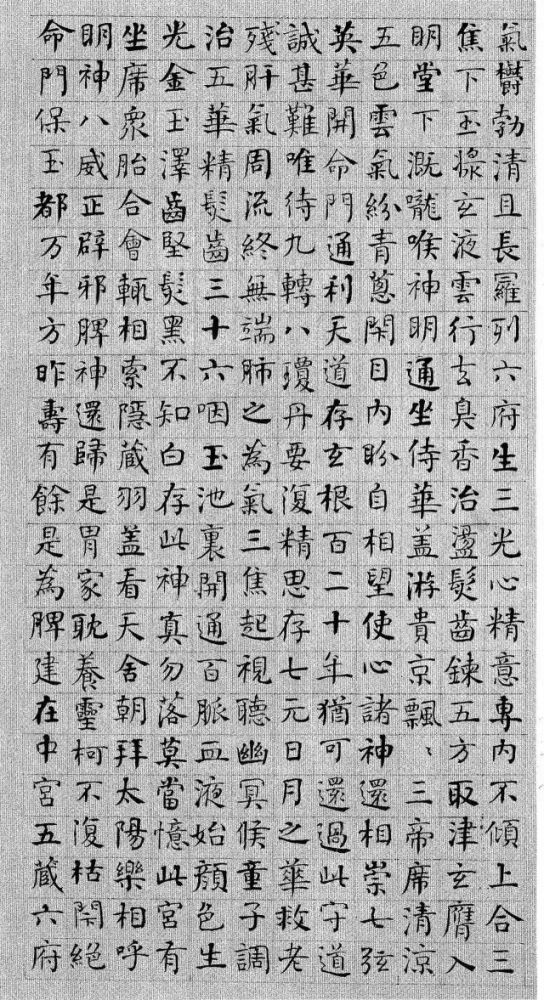 氣欝勃清且長羅列六府生三光心精意專內不傾上合三
焦下玉漿玄液雲行去臭香治盪髮齒鍊五方取津玄膺入
明堂下溉嚨喉神明通坐侍華盖游貴京飄〻三帝席清涼
五色雲氣紛青葱閇目內盼自相望使心諸神還相崇七弦
英華開命門通利天道存玄根百二十年猶可還過此守道
誠甚難唯待九轉八瓊丹要復精思存七元日月之華救老
殘肝氣周流終無端肺之為氣三焦起視聽幽冥候童子調
治五華精髮齒三十六咽玉池裏開通百脈血液始顏色生
光金玉澤齒堅髮黑不知白存此神真勿落莫當憶此宮有
坐席衆胎合會輒相索隱藏羽盖看天舍朝拜太陽樂相呼
明神八威正辟邪脾神還歸是胃家耽養靈柯不復枯閇絕
命門保玉都万年方昨壽有餘是為脾建在中宮五藏六府